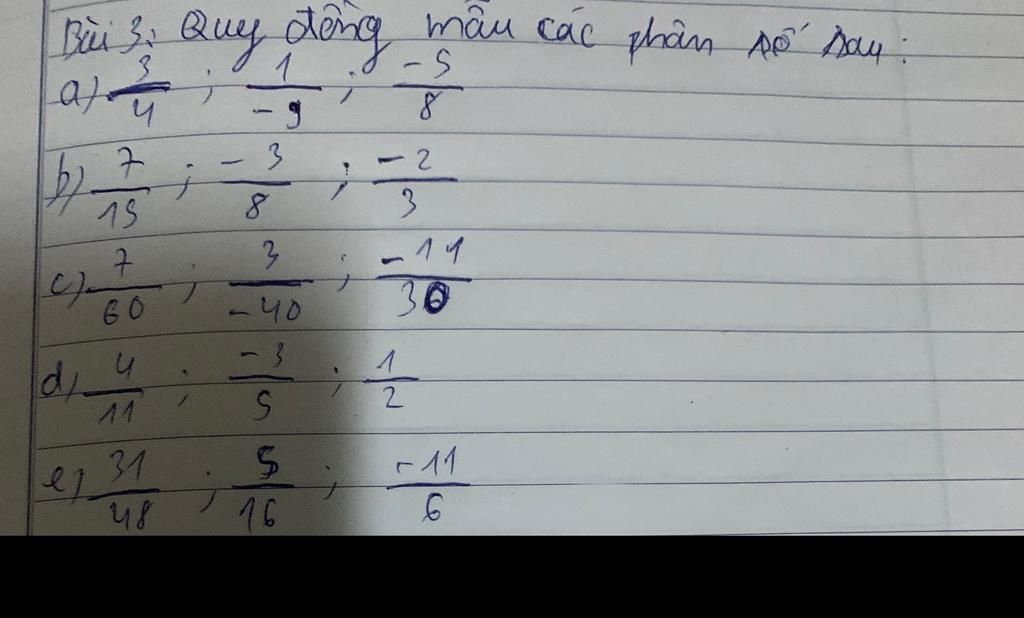 Bài 3: Quy đồng mẫu các phân số sau:
a) 3/4 ; 1/-9 ; -5/8
b) 7/15 ; -3/8 ; -2/3
c) 7/60 ; 3/-40 ; -11/30
d) 4/11 ; -3/5 ; 1/2
e) 31/48 ; 5/16 ; -11/6